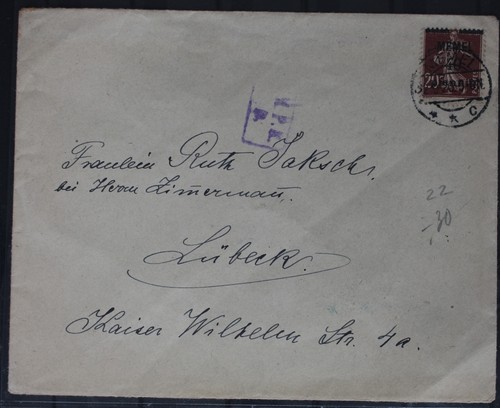 MEMEL
20
C
M.P.K.
Fräulein Ruth Jaksch.
bei Herrn Zimmerman.
Lübeck.
Kaiser Wilhelm Str. 4a.
22
-.30